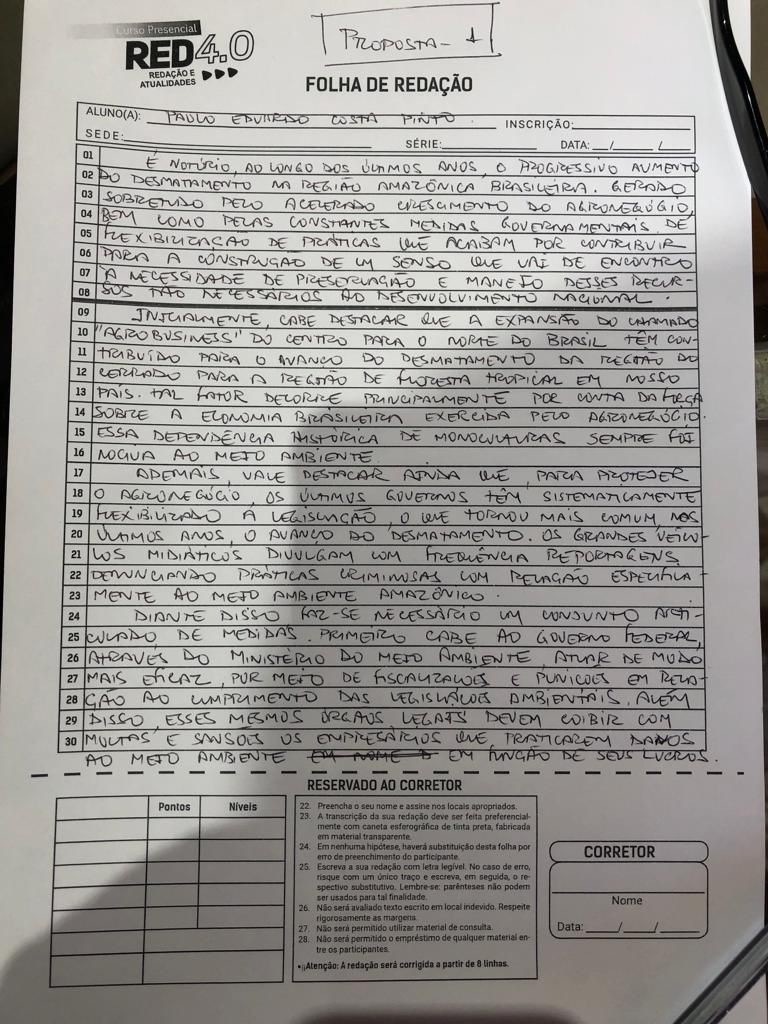 Curso Presencial
RED 4.0
REDAÇÃO E
ATUALIDADES
PROPOSTA - 1
FOLHA DE REDAÇÃO
ALUNO(A): PAULO EDUARDO COSTA PINTO INSCRIÇÃO:
SEDE: SÉRIE: DATA: / /
01 É NOTÓRIO, AO LONGO DOS ÚLTIMOS ANOS, O PROGRESSIVO AUMENTO
02 DO DESMATAMENTO NA REGIÃO AMAZÔNICA BRASILEIRA. GERADO
03 SOBRETUDO PELO ACELERADO CRESCIMENTO DO AGRONEGÓCIO,
04 BEM COMO PELAS CONSTANTES MEDIDAS GOVERNAMENTAIS DE
05 FLEXIBILIZAÇÃO DE PRÁTICAS QUE ACABAM POR CONTRIBUIR
06 PARA A CONSTRUÇÃO DE UM SENSO QUE VAI DE ENCONTRO
07 À NECESSIDADE DE PRESERVAÇÃO E MANEJO DESSES RECUR-
08 SOS TÃO NECESSÁRIOS AO DESENVOLVIMENTO NACIONAL.
09 INICIALMENTE, CABE DESTACAR QUE A EXPANSÃO DO CHAMADO
10 "AGROBUSINESS" DO CENTRO PARA O NORTE DO BRASIL TÊM CON-
11 TRIBUÍDO PARA O AVANÇO DO DESMATAMENTO DA REGIÃO DO
12 CERRADO PARA A REGIÃO DE FLORESTA TROPICAL EM NOSSO
13 PAÍS. TAL FATOR DECORRE PRINCIPALMENTE POR CONTA DA FORÇA
14 SOBRE A ECONOMIA BRASILEIRA EXERCIDA PELO AGRONEGÓCIO.
15 ESSA DEPENDÊNCIA HISTÓRICA DE MONOCULTURAS SEMPRE FOI
16 NOCIVA AO MEIO AMBIENTE.
17 ADEMAIS, VALE DESTACAR AINDA QUE, PARA PROTEJER
18 O AGRONEGÓCIO, OS ÚLTIMOS GOVERNOS TÊM SISTEMATICAMENTE
19 FLEXIBILIZADO A LEGISLAÇÃO, O QUE TORNOU MAIS COMUM, NOS
20 ÚLTIMOS ANOS, O AVANÇO DO DESMATAMENTO. OS GRANDES VEÍCU-
21 LOS MIDIÁTICOS DIVULGAM COM FREQUÊNCIA REPORTAGENS
22 DENUNCIANDO PRÁTICAS CRIMINOSAS COM RELAÇÃO ESPECIFICA-
23 MENTE AO MEIO AMBIENTE AMAZÔNICO.
24 DIANTE DISSO FAZ-SE NECESSÁRIO UM CONJUNTO ARTI-
25 CULADO DE MEDIDAS. PRIMEIRO CABE AO GOVERNO FEDERAL,
26 ATRAVÉS DO MINISTÉRIO DO MEIO AMBIENTE, ATUAR DE MODO
27 MAIS EFICAZ, POR MEIO DE FISCALIZAÇÕES E PUNIÇÕES EM RELA-
28 ÇÃO AO CUMPRIMENTO DAS LEGISLAÇÕES AMBIENTAIS. ALÉM
29 DISSO, ESSES MESMOS ÓRGÃOS LEGAIS DEVEM COIBIR COM
30 MULTAS E SANSÕES OS EMPRESÁRIOS QUE PRATICAREM DANOS
AO MEIO AMBIENTE EM FUNÇÃO DE SEUS LUCROS.
RESERVADO AO CORRETOR
Pontos Níveis
22. Preencha o seu nome e assine nos locais apropriados.
23. A transcrição da sua redação deve ser feita preferencial-
mente com caneta esferográfica de tinta preta, fabricada
em material transparente.
24. Em nenhuma hipótese, haverá substituição desta folha por
erro de preenchimento do participante.
25. Escreva a sua redação com letra legível. No caso de erro,
risque com um único traço e escreva, em seguida, o re-
spectivo substitutivo. Lembre-se: parênteses não podem
ser usados para tal finalidade.
26. Não será avaliado texto escrito em local indevido. Respeite
rigorosamente as margens.
27. Não será permitido utilizar material de consulta.
28. Não será permitido o empréstimo de qualquer material en-
tre os participantes.
•¡¡Atenção: A redação será corrigida a partir de 8 linhas.
CORRETOR
Nome
Data: / /